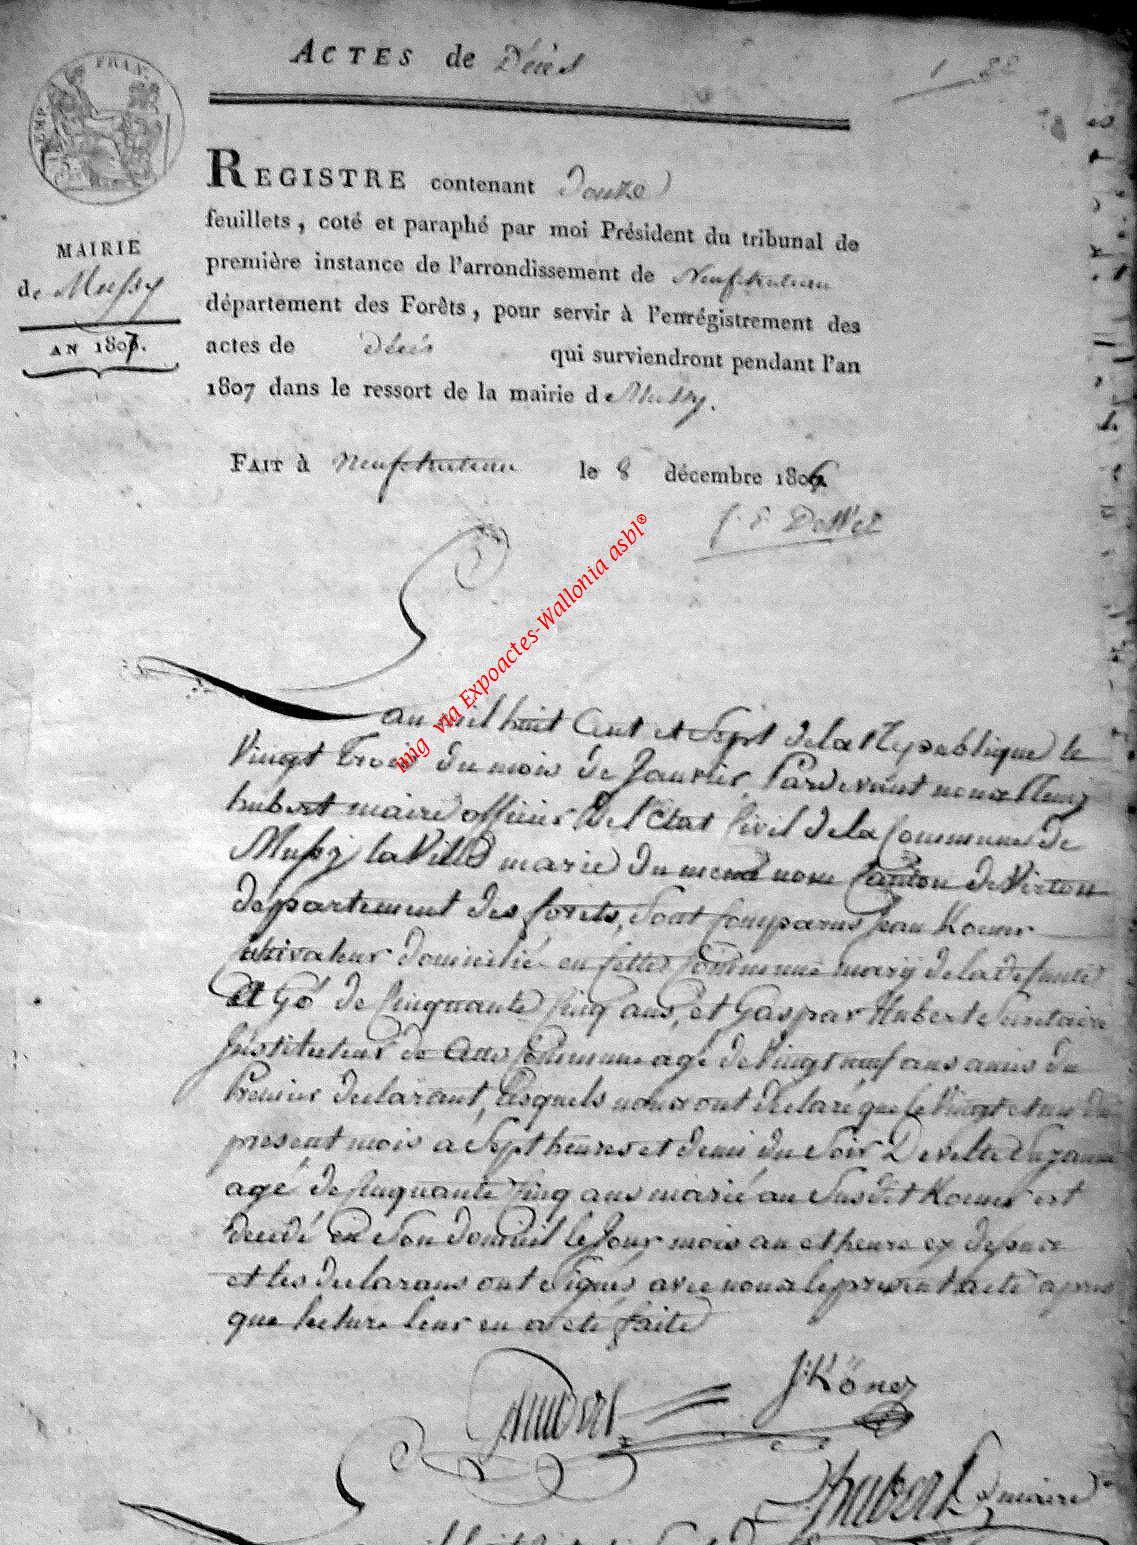 ACTES de Décès
EMP. FRAN.
REGISTRE contenant Douze
feuillets, coté et paraphé par moi Président du tribunal de
première instance de l'arrondissement de Neufchateau
département des Forêts, pour servir à l'enrégistrement des
actes de Décès qui surviendront pendant l'an
1807 dans le ressort de la mairie de Mussy.
MAIRIE
de Mussy
AN 1807.
FAIT à Neufchateau le 8 décembre 1806
img via Expoactes-Wallonia asbl®
L'an mil huit Cent et Sept de la Republique le
Vingt Trois du mois de Janvier, Pardevant nous
hubert maire officier de l'Etat Civil de la Commune de
Mussy la Ville mairie du meme nom Canton de Virton
département des forêts, sont Comparus Jean
Cultivateur domicilié en Cette Commune mary de la defunte
agé de Cinquante Cinq ans, et Gaspar Hubert
Instituteur de Cette Commune agé de Vingt neuf ans amis du
Premier declarant, lesquels nous ont declaré que le Vingt et un du
present mois a Sept heures et demi du Soir
agé de Cinquante Cinq ans marié au Susdit est
decedé en Son domicil le Jour mois an et heure
et les declarans ont Signés avec nous le present acte apres
que lecture leur en a eté faite
Hubert J: Köner
Hubert maire